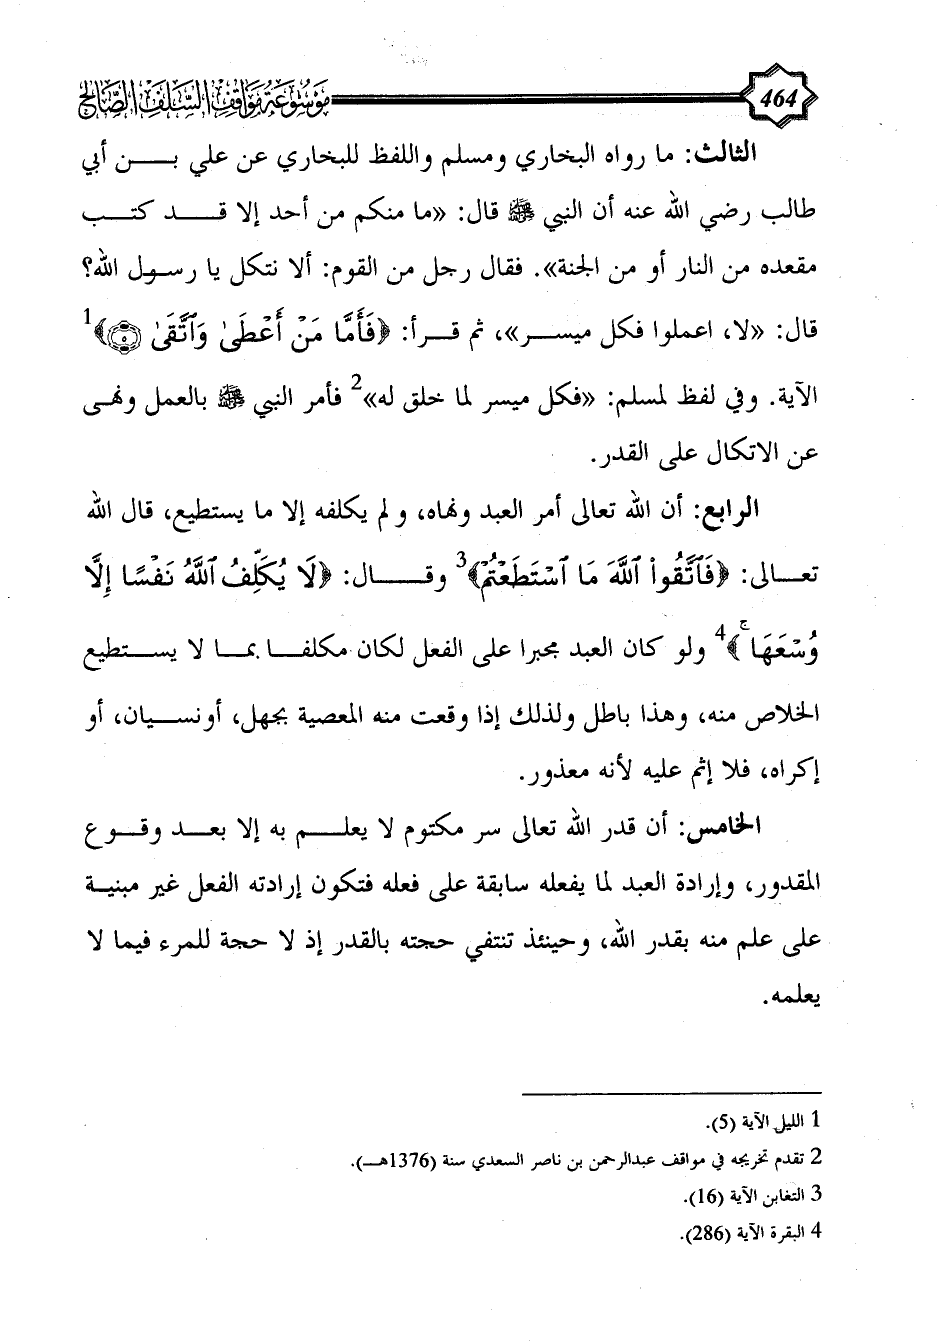 464 موسوعة مواقف السلف الصالح
الثالث: ما رواه البخاري ومسلم واللفظ للبخاري عن علي بــن أبي
طالب رضي الله عنه أن النبي ﷺ قال: «ما منكم من أحد إلا قــد كتــب
مقعده من النار أو من الجنة». فقال رجل من القوم: ألا نتكل يا رسول الله؟
قال: «لا، اعملوا فكل ميســر»، ثم قــرأ: ﴿فَأَمَّا مَنْ أَعْطَىٰ وَٱتَّقَىٰ ۝٥﴾1
الآية. وفي لفظ لمسلم: «فكل ميسر لما خلق له»2 فأمر النبي ﷺ بالعمل ونهــى
عن الاتكال على القدر.
الرابع: أن الله تعالى أمر العبد ونهاه، ولم يكلفه إلا ما يستطيع، قال الله
تعــالى: ﴿فَٱتَّقُوا۟ ٱللَّهَ مَا ٱسْتَطَعْتُمْ﴾3 وقــال: ﴿لَا يُكَلِّفُ ٱللَّهُ نَفْسًا إِلَّا
وُسْعَهَا ۚ﴾4 ولو كان العبد مجبرا على الفعل لكان مكلفــا بمــا لا يســتطيع
الخلاص منه، وهذا باطل ولذلك إذا وقعت منه المعصية بجهل، أونسيان، أو
إكراه، فلا إثم عليه لأنه معذور.
الخامس: أن قدر الله تعالى سر مكتوم لا يعلــم به إلا بعــد وقــوع
المقدور، وإرادة العبد لما يفعله سابقة على فعله فتكون إرادته الفعل غير مبنيــة
على علم منه بقدر الله، وحينئذ تنتفي حجته بالقدر إذ لا حجة للمرء فيما لا
يعلمه.
1 الليل الآية (5).
2 تقدم تخريجه في مواقف عبدالرحمن بن ناصر السعدي سنة (1376هــ).
3 التغابن الآية (16).
4 البقرة الآية (286).